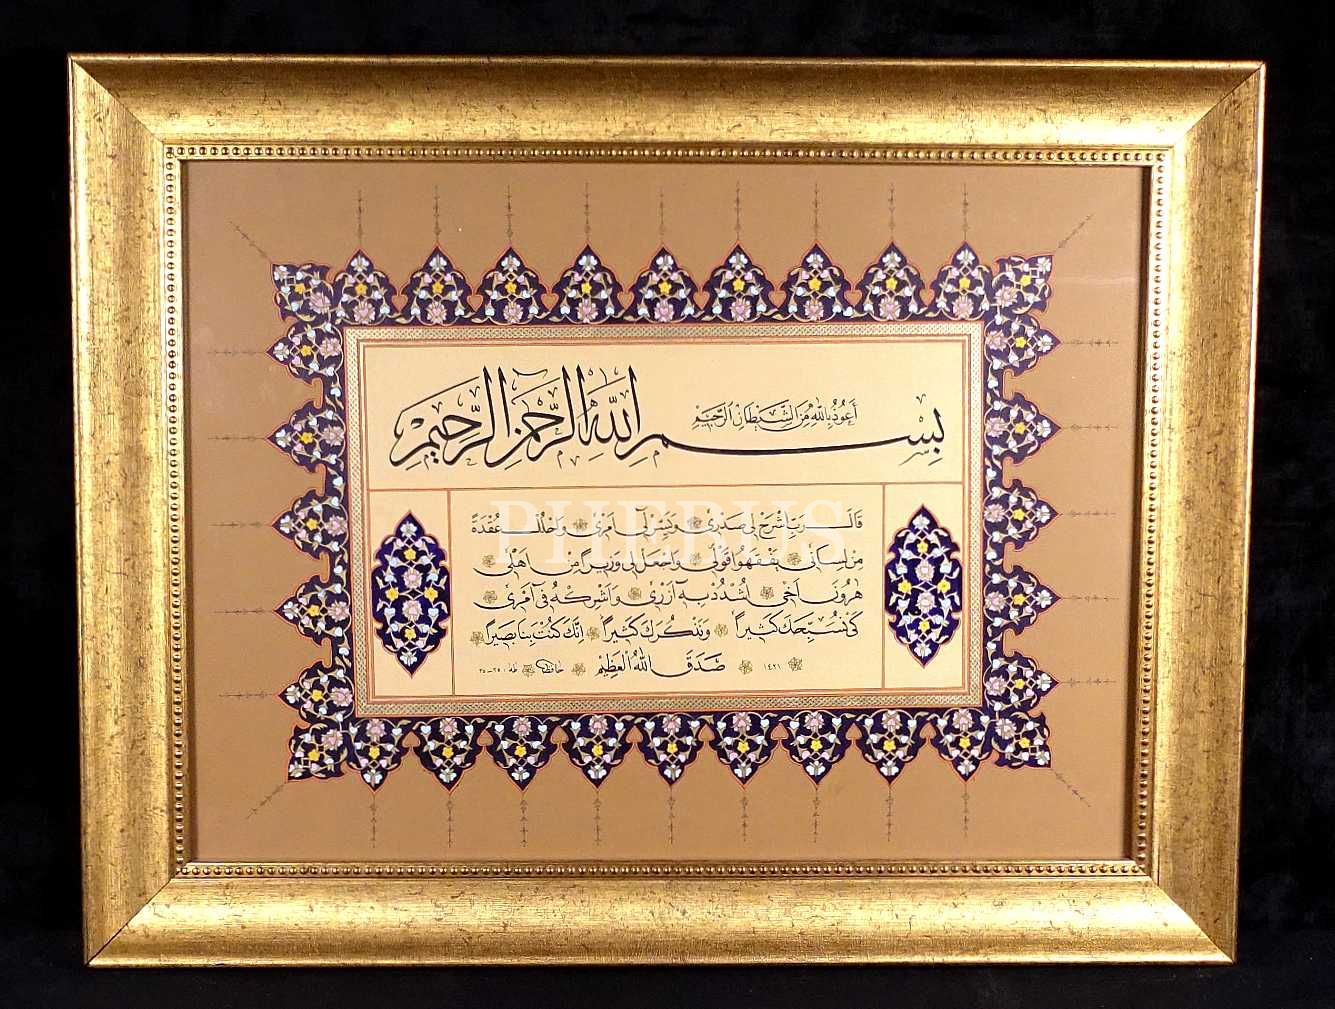 أَعُوذُ بِاللهِ مِنَ الشَّيْطَانِ الرَّجِيمِ
بِسْمِ اللهِ الرَّحْمٰنِ الرَّحِيمِ
قَالَ رَبِّ اشْرَحْ لِي صَدْرِي وَيَسِّرْ لِي أَمْرِي وَاحْلُلْ عُقْدَةً
مِنْ لِسَانِي يَفْقَهُوا قَوْلِي وَاجْعَلْ لِي وَزِيرًا مِنْ أَهْلِي
هٰرُونَ أَخِي اشْدُدْ بِهِ أَزْرِي وَأَشْرِكْهُ فِي أَمْرِي
كَيْ نُسَبِّحَكَ كَثِيرًا وَنَذْكُرَكَ كَثِيرًا إِنَّكَ كُنْتَ بِنَا بَصِيرًا
١٤٢١ صَدَقَ اللهُ الْعَظِيمُ طه ٢٥-٣٥
PHEBUS